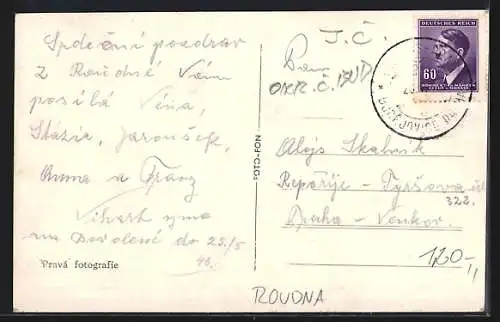 Srdeční pozdrav
z Roudné Vám
posílá Věra,
Stázia, Jaroušek,
Anna a Franz
na dovolené do 25/5
43.
Pravá fotografie
FOTO-FON
J. Č.
Pan
OKR. Č. BUD
DEUTSCHES REICH
60
BÖHMEN UND MÄHREN
ČECHY A MORAVA
Alois Skalník
Řeporyje - Tyršova ul.
322.
Praha - Venkov.
120,-
ROUDNA